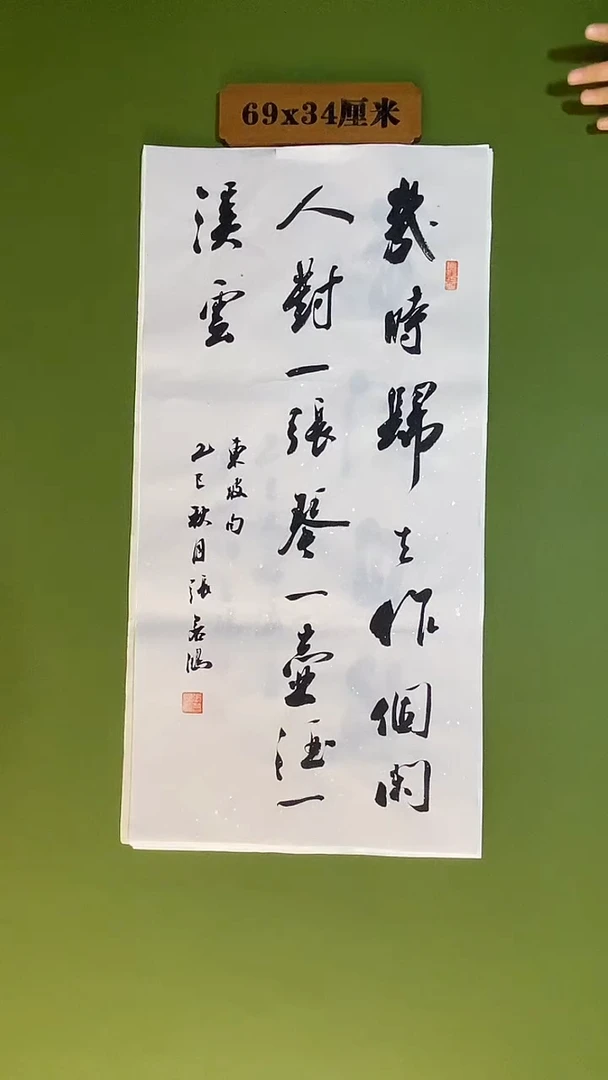 69x34厘米
幾時歸去作個閑
人對一張琴一壺酒一
溪雲
東坡句
乙巳秋月張